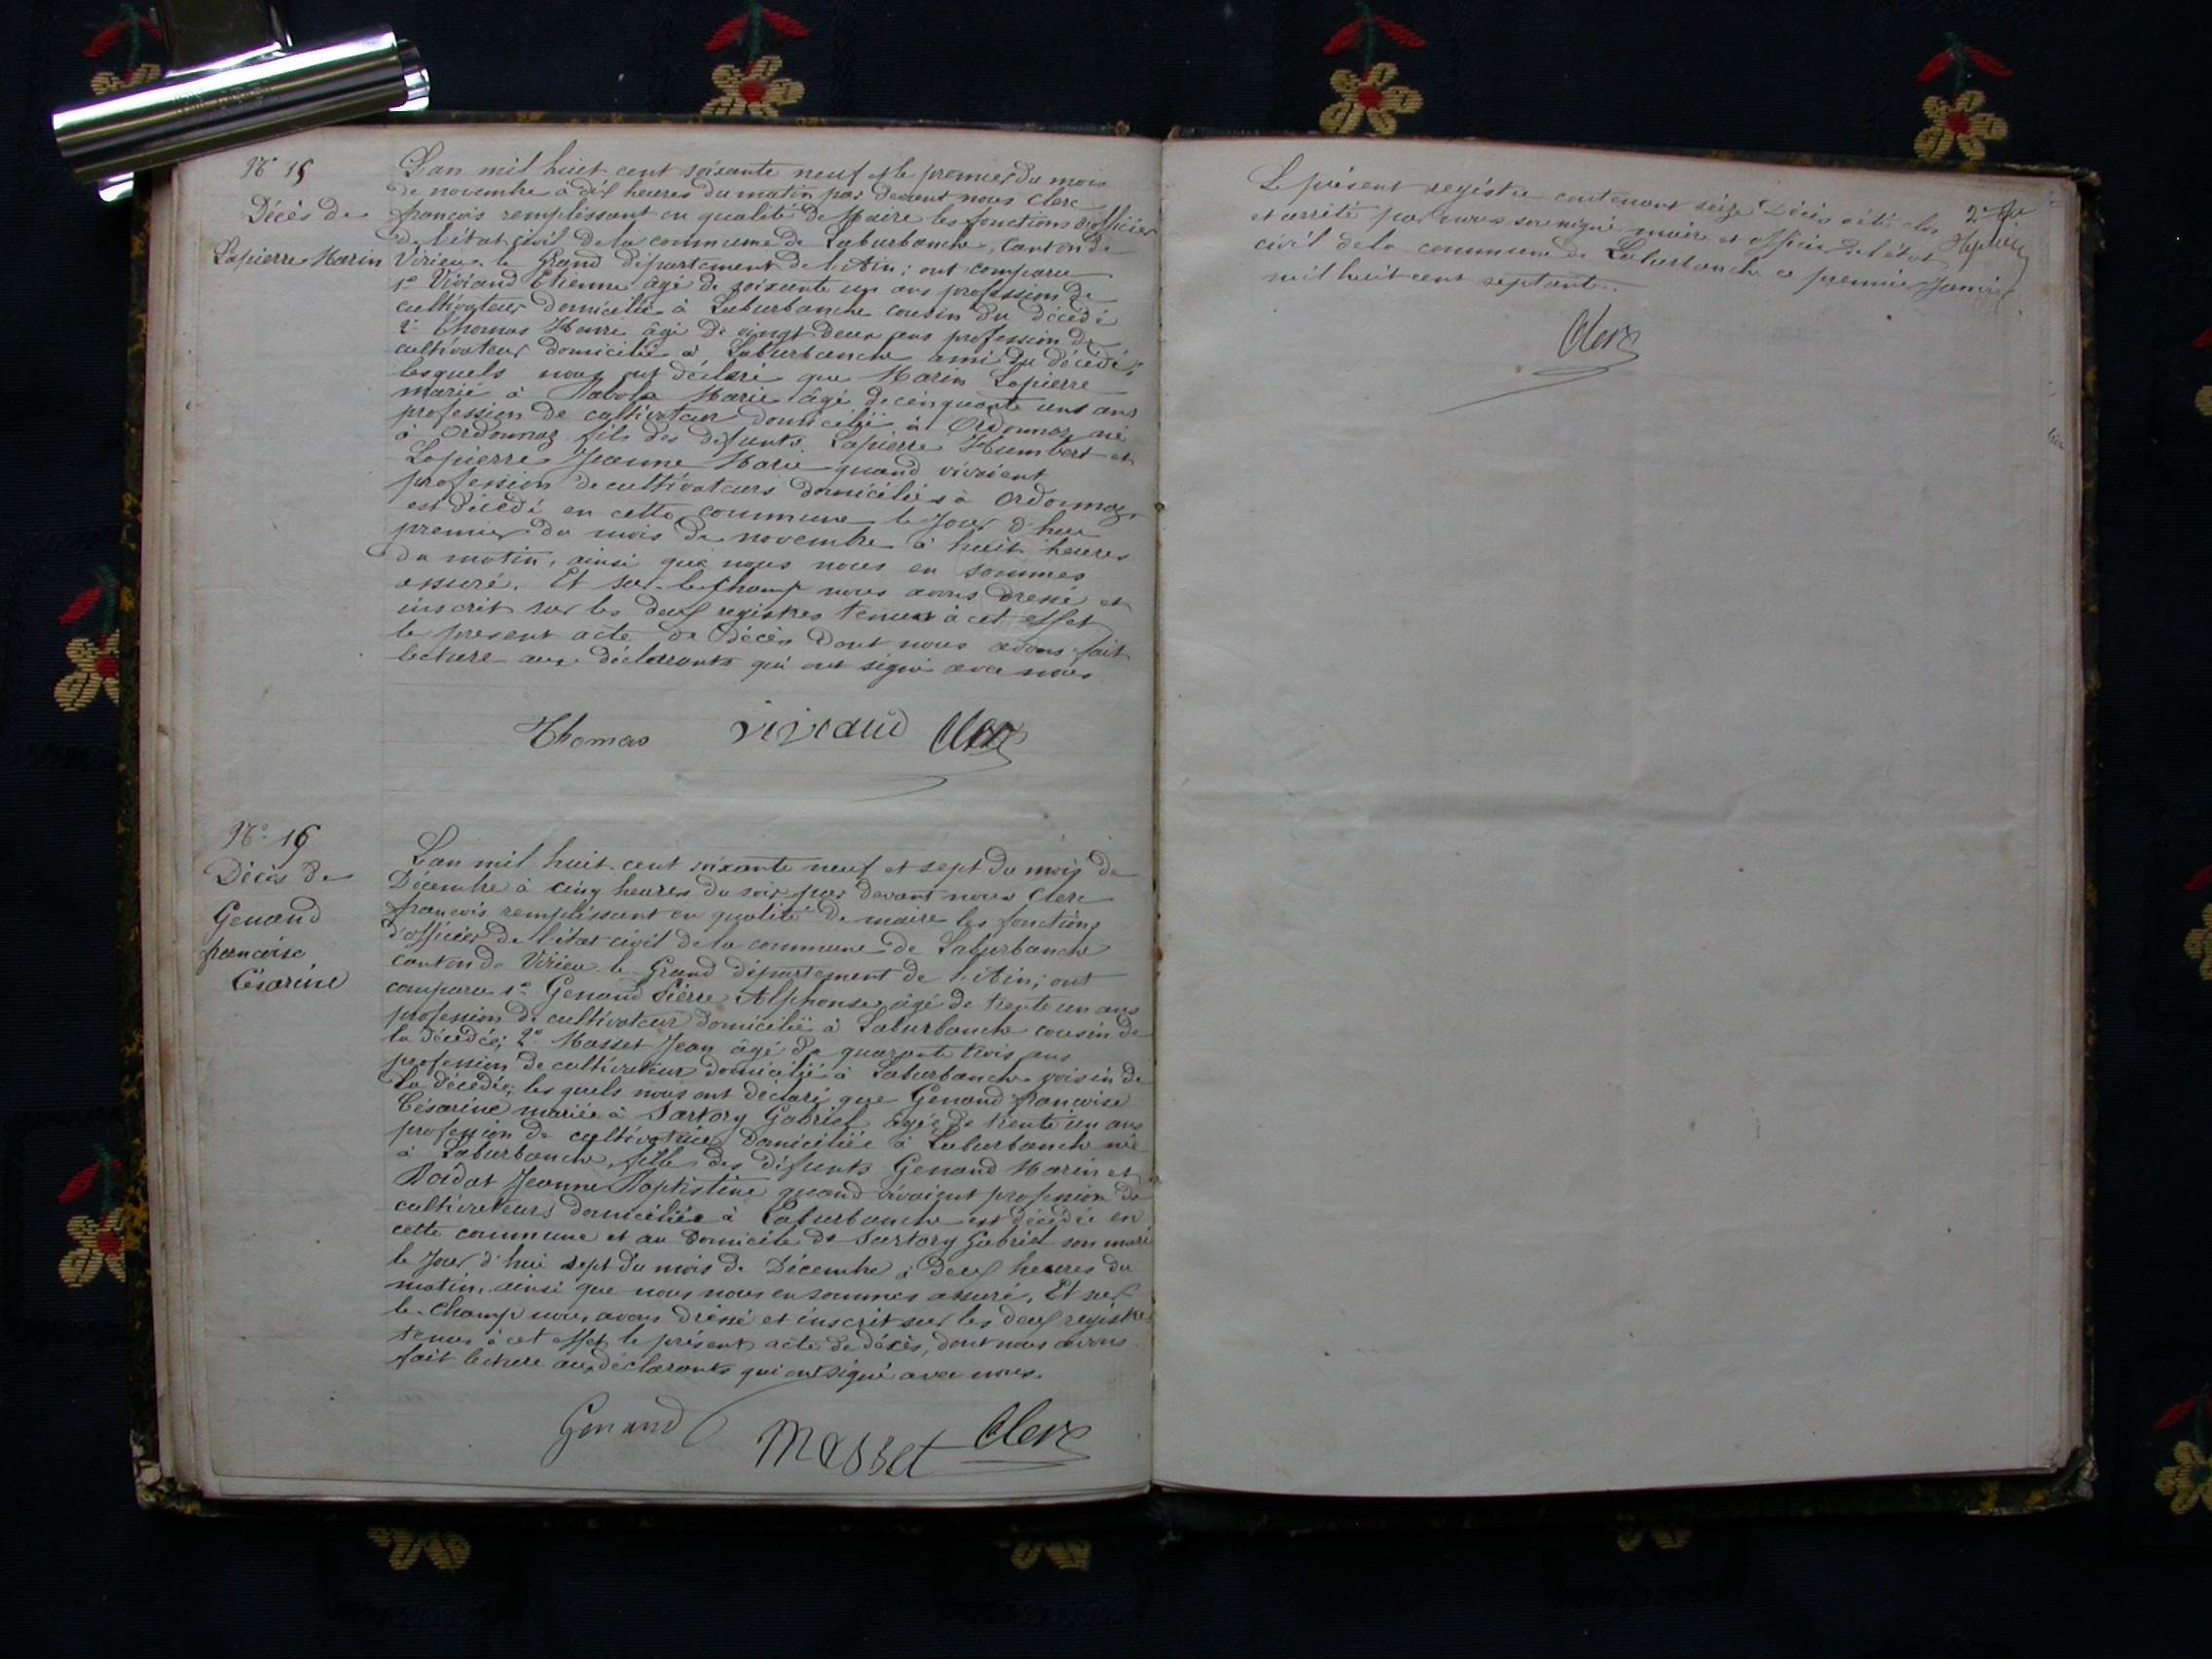 N° 15
Décès de
Lapierre Marin
L'an mil huit cent soixante neuf et le premier du mois
de novembre à dix heures du matin par devant nous Clerc
françois remplissant en qualité de Maire les fonctions d'officier
de l'état civil de la commune de Laburbanche, Canton de
Virieu-le-Grand département de l'Ain; ont comparu
1° Viviand Etienne âgé de soixante un ans profession de
cultivateur domicilié à Laburbanche cousin du décédé
2° Thomas Henri âgé de vingt deux ans profession de
cultivateur domicilié à Laburbanche ami du décédé;
lesquels nous ont déclaré que Marin Lapierre
marié à Marie âgé de cinquante un ans
profession de cultivateur domicilié à Ordonnaz né
à Ordonnaz fils des défunts Lapierre Humbert et
Lapierre Jeanne Marie quand vivaient
profession de cultivateurs domiciliés à Ordonnaz,
est décédé en cette commune le Jour d'hui
premier du mois de novembre à huit heures
du matin, ainsi que nous nous en sommes
assuré. Et sur-le-champ nous avons dressé et
inscrit sur les deux registres tenus à cet effet
le présent acte de Décès dont nous avons fait
lecture aux déclarants qui ont signé avec nous
Thomas viviand Clerc
N° 16
Décès de
Genand
francoise
Césarine
L'an mil huit cent soixante neuf et sept du mois de
Décembre à cinq heures du soir par devant nous Clerc
françois remplissant en qualité de maire les fonctions
d'officier de l'état civil de la commune de Laburbanche
canton de Virieu-le-Grand département de l'Ain; ont
comparu 1° Genand Pierre Alphonse âgé de trente un ans
profession de cultivateur domicilié à Laburbanche cousin de
la décédée; 2° Masset Jean âgé de quarante trois ans
profession de cultivateur domicilié à Laburbanche voisin de
La décédée; les quels nous ont déclaré que Genand francoise
Césarine mariée à Sartory Gabriel âgée de trente un ans
profession de cultivatrice domiciliée à Laburbanche née
à Laburbanche, fille des défunts Genand Marin et
Jeanne Baptistine quand vivaient profession de
cultivateurs domiciliés à Laburbanche est décédée en
cette commune et au domicile de Sartory Gabriel son mari
le Jour d'hui sept du mois de Décembre à deux heures du
matin, ainsi que nous nous en sommes assuré, Et sur
le-champ nous avons dressé et inscrit sur les deux registres
tenus à cet effet le présent acte de décès, dont nous avons
fait lecture aux déclarants qui ont signé avec nous.
Genand Masset Clerc
Le présent registre contenant seize Décès a été clos
et arrêté par nous soussigné maire et officier de l'état
civil de la commune de Laburbanche ce premier Janvier
mil huit cent septante.
Clerc